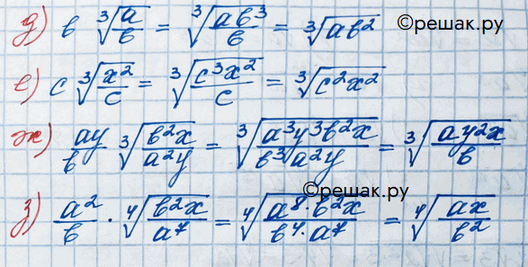 д) b ∛(a/b) = ∛(ab³/b) = ∛(ab²) ©решак.ру
е) c ∛(x²/c) = ∛(c³x²/c) = ∛(c²x²)
ж) ay/b ∛(b²x/a²y) = ∛(a³y³b²x/b³a²y) = ∛(ay²x/b)
©решак.ру
з) a²/b · ∜(b²x/a⁷) = ∜(a⁸·b²x/b⁴·a⁷) = ∜(ax/b²)